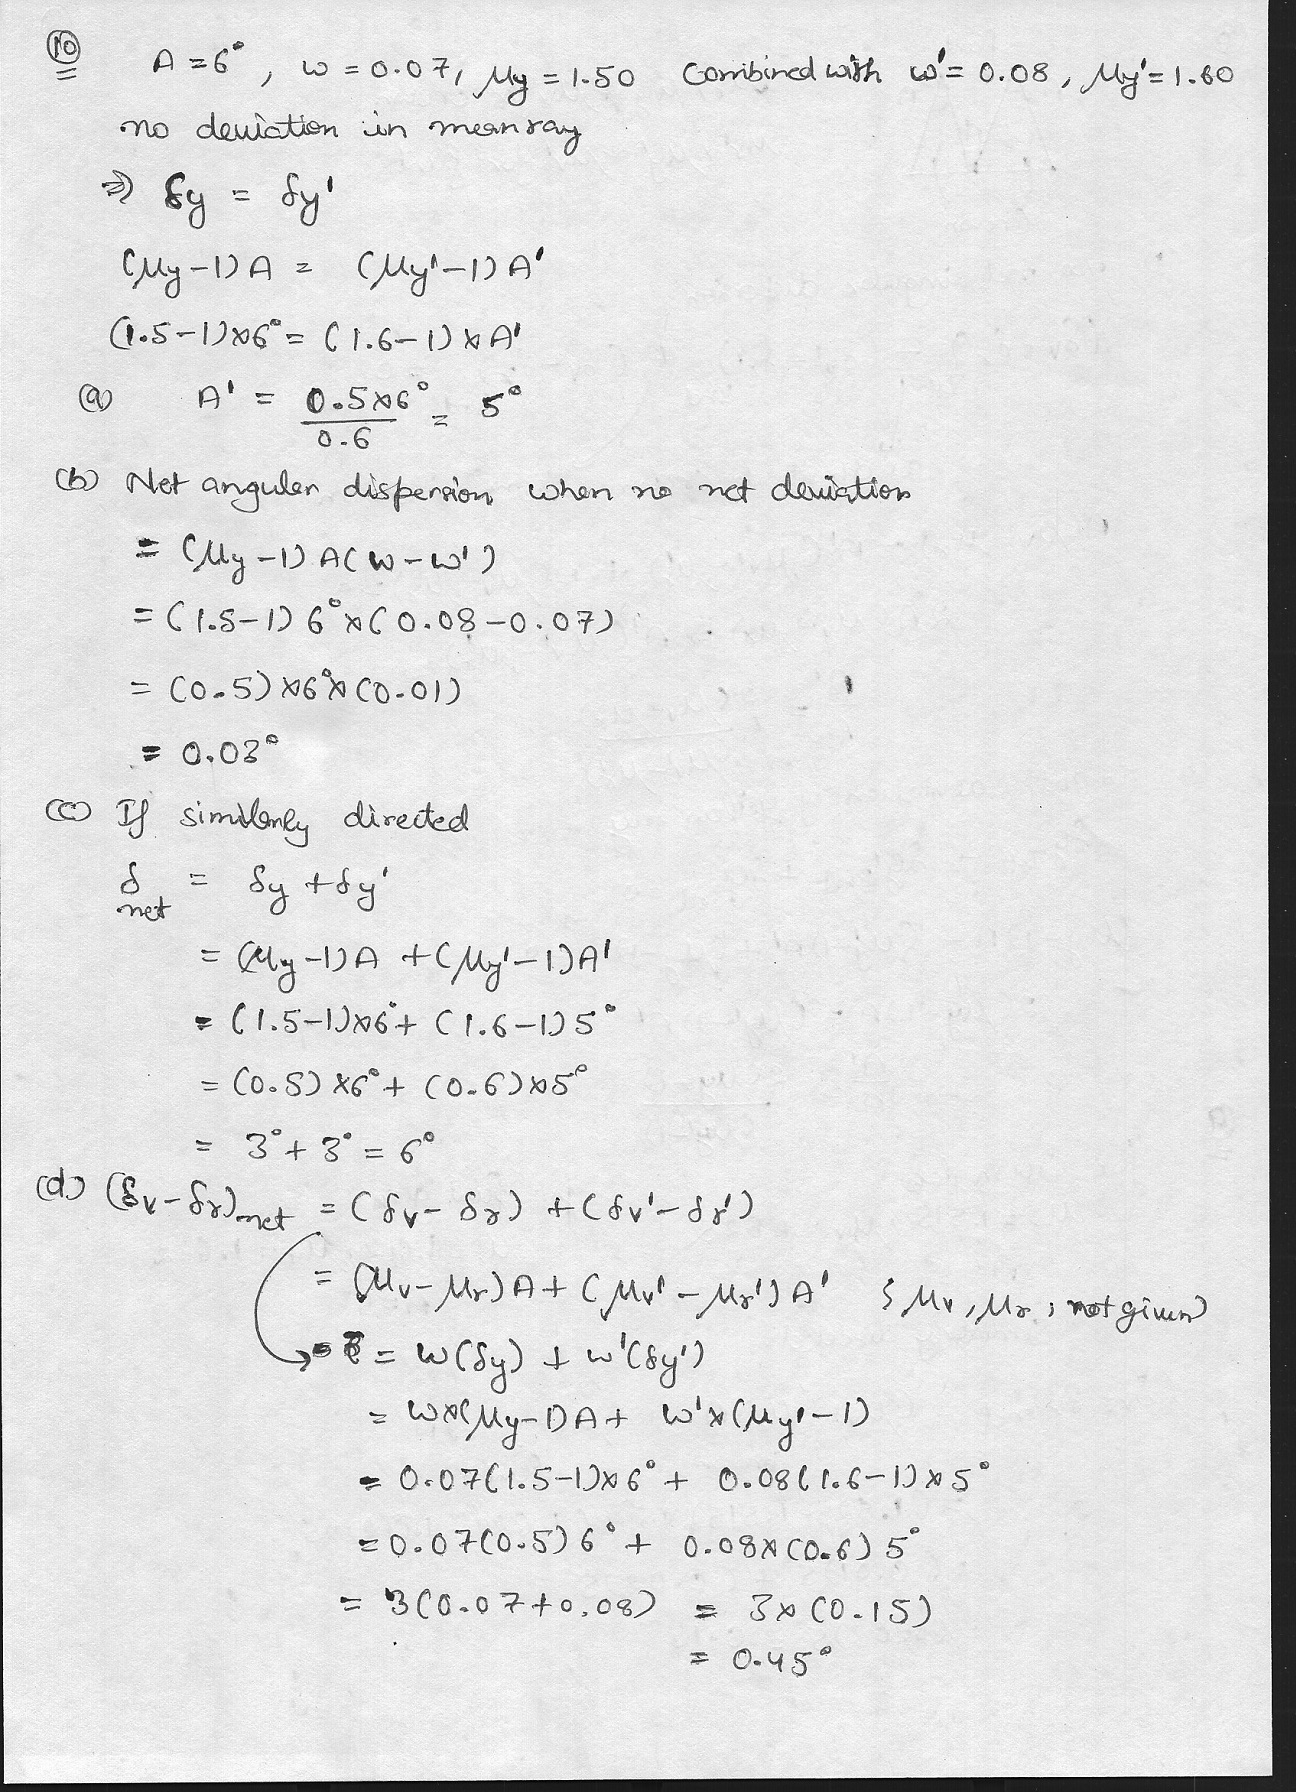 10
A = 6°, w = 0.07, μy = 1.50 Combined with w' = 0.08, μy' = 1.60
no deviation in mean ray
⇒ δy = δy'
(μy-1)A = (μy'-1)A'
(1.5-1)×6° = (1.6-1)×A'
(a) A' = 0.5×6°/0.6 = 5°
(b) Net angular dispersion when no net deviation
= (μy-1)A(w-w')
= (1.5-1)6°×(0.08-0.07)
= (0.5)×6°×(0.01)
= 0.03°
(c) If similarly directed
δnet = δy + δy'
= (μy-1)A + (μy'-1)A'
= (1.5-1)×6° + (1.6-1)5°
= (0.5)×6° + (0.6)×5°
= 3° + 3° = 6°
(d) (δv-δr)net = (δv-δr) + (δv'-δr')
= (μv-μr)A + (μv'-μr')A' { μv, μr, not given }
= w(δy) + w'(δy')
= w×(μy-1)A + w'×(μy'-1)
= 0.07(1.5-1)×6° + 0.08(1.6-1)×5°
= 0.07(0.5)6° + 0.08×(0.6)5°
= 3(0.07+0.08) = 3×(0.15)
= 0.45°